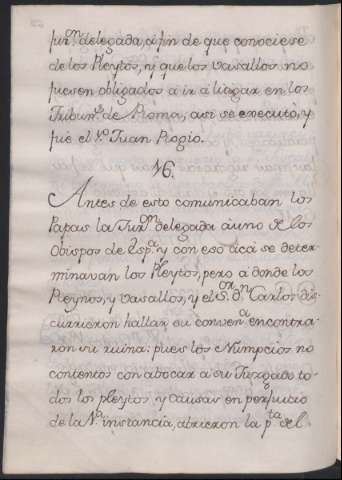 jurⁿ delegada, á fin de que conociese
de los Pleytos, y que los vasallos no
fuesen obligados á ir á litigar en los
Tribunˢ de Roma, asi se executó, y
fue el 1º Juan Pogio.
16.
Antes de esto comunicaban los
Papas la Jurⁿ delegada á uno de los
Obispos de Espª y con eso acá se deter-
minavan los Pleytos, pero a donde los
Reynos, y vasallos, y el Sᵒʳ Dⁿ Carlos dis-
currieron hallar su convenª encontra-
ron su ruina: pues los Numpcios no
contentos con abocar á su Juzgado to-
dos los pleytos y causas en perjuicio
de la 1ª instancia, abrieron la pᵗᵃ del